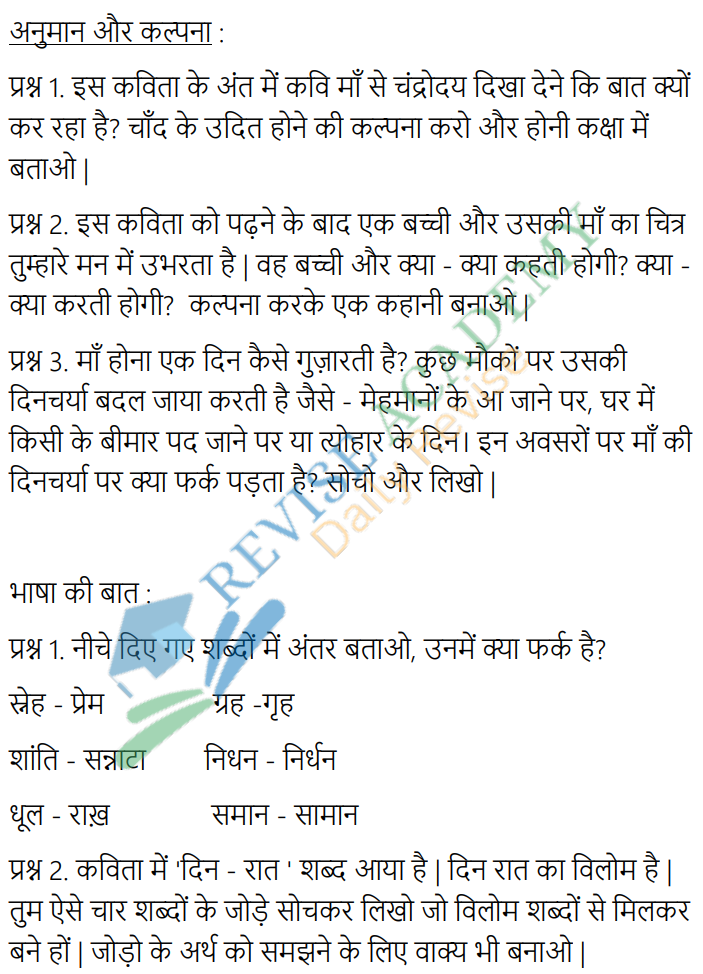 अनुमान और कल्पना :
प्रश्न 1. इस कविता के अंत में कवि माँ से चंद्रोदय दिखा देने कि बात क्यों
कर रहा है? चाँद के उदित होने की कल्पना करो और होनी कक्षा में
बताओ |
प्रश्न 2. इस कविता को पढ़ने के बाद एक बच्ची और उसकी माँ का चित्र
तुम्हारे मन में उभरता है | वह बच्ची और क्या - क्या कहती होगी? क्या -
क्या करती होगी? कल्पना करके एक कहानी बनाओ |
प्रश्न 3. माँ होना एक दिन कैसे गुज़ारती है? कुछ मौकों पर उसकी
दिनचर्या बदल जाया करती है जैसे - मेहमानों के आ जाने पर, घर में
किसी के बीमार पद जाने पर या त्योहार के दिन। इन अवसरों पर माँ की
दिनचर्या पर क्या फर्क पड़ता है? सोचो और लिखो |
REVISE ACADEMY
Daily Revise
भाषा की बात :
प्रश्न 1. नीचे दिए गए शब्दों में अंतर बताओ, उनमें क्या फर्क है?
स्नेह - प्रेम ग्रह -गृह
शांति - सन्नाटा निधन - निर्धन
धूल - राख़ समान - सामान
प्रश्न 2. कविता में 'दिन - रात ' शब्द आया है | दिन रात का विलोम है |
तुम ऐसे चार शब्दों के जोड़े सोचकर लिखो जो विलोम शब्दों से मिलकर
बने हों | जोड़ो के अर्थ को समझने के लिए वाक्य भी बनाओ |